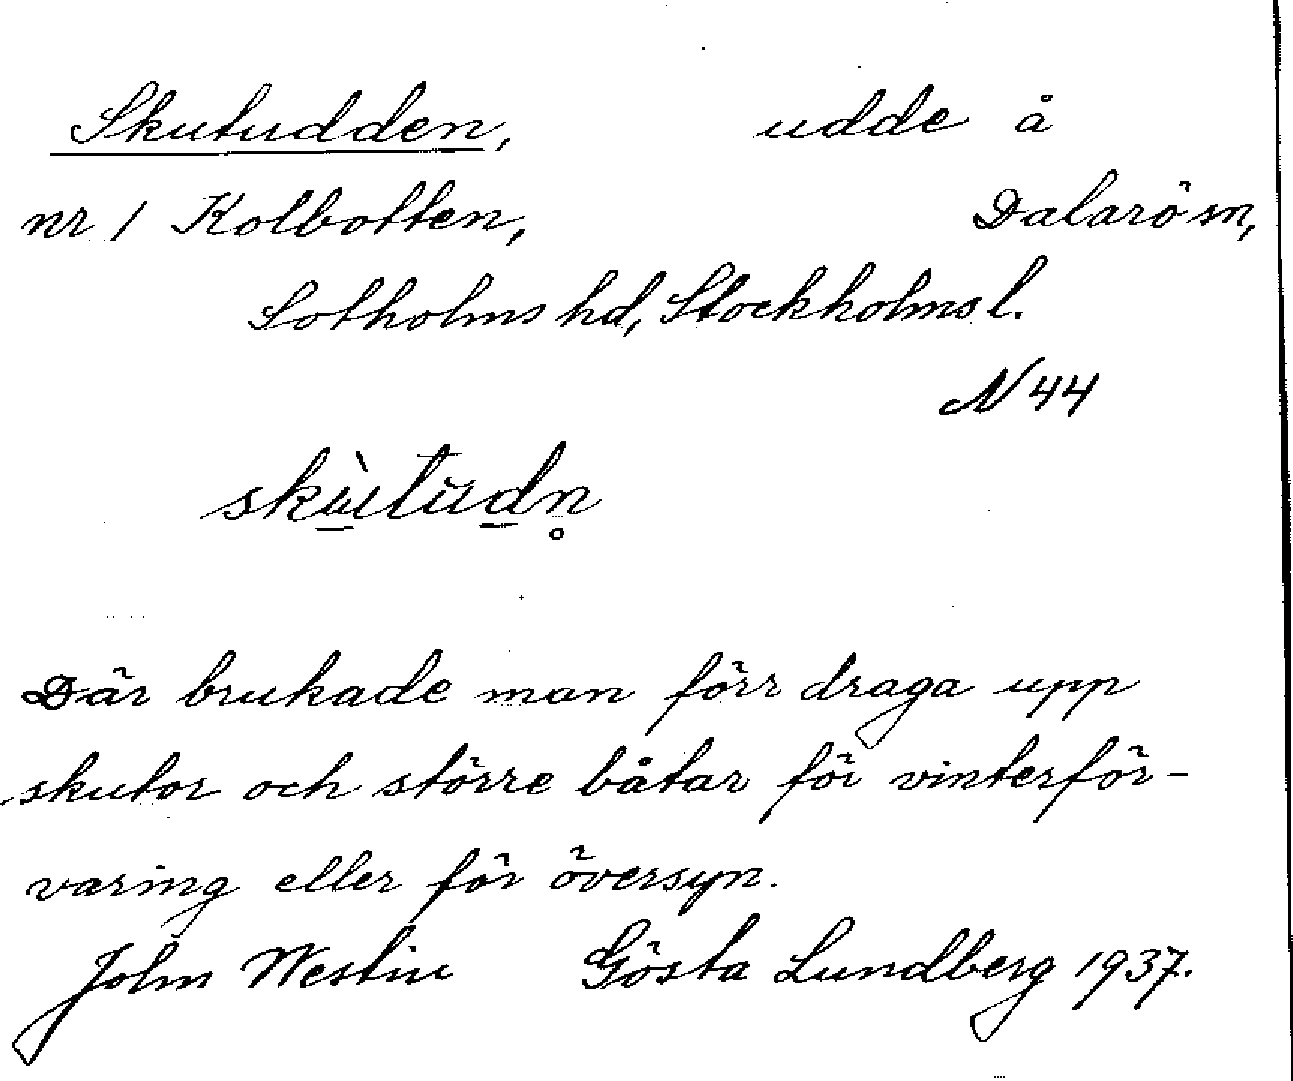 Skutudden, udde å
nr 1 Kolbotten, Dalarö sn,
Sotholms hd, Stockholms l.
N 44
Där brukade man förr draga upp
skutor och större båtar för vinterför-
varing eller för översyn.
John Westin Gösta Lundberg 1937.